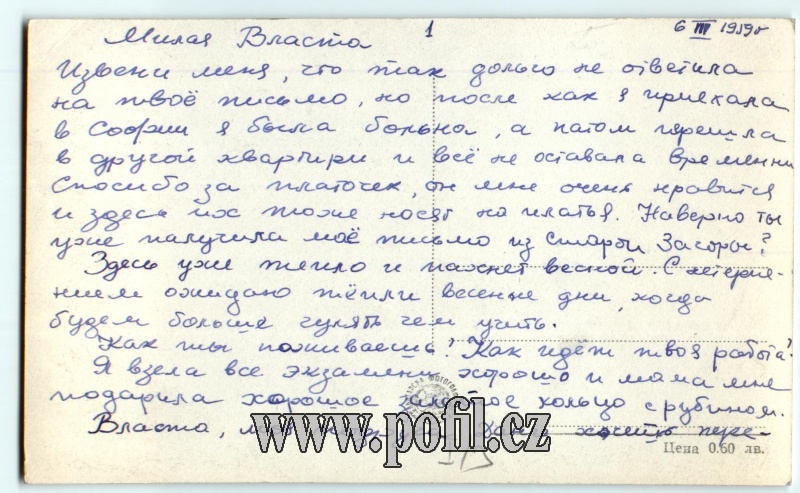 1
6 III 1959 г
Милая Власта
Извени меня, что так долго не ответила
на твоё письмо, но после как я приехала
в Софии я была больна, а патом перешла
в другой квартири и всё не оставала времени
Спосибо за платочек, он мне очень нравится
и здесь их тоже носят на платья. Наверно ты
уже палучила моё письмо из Старой Загоры?
Здесь уже тепло и пахнет весной. С нетерпе-
нием ожидаю тёпли весеные дни, когда
будем больше гулять чем учить.
Как ты поживаешь? Как идёт твоя работа?
Я взела все экзамены хорошо и мама мне
подарила хорошое кольцо с рубином.
Власта, хочить пере-
www.pofil.cz
Цена 0.60 лв.